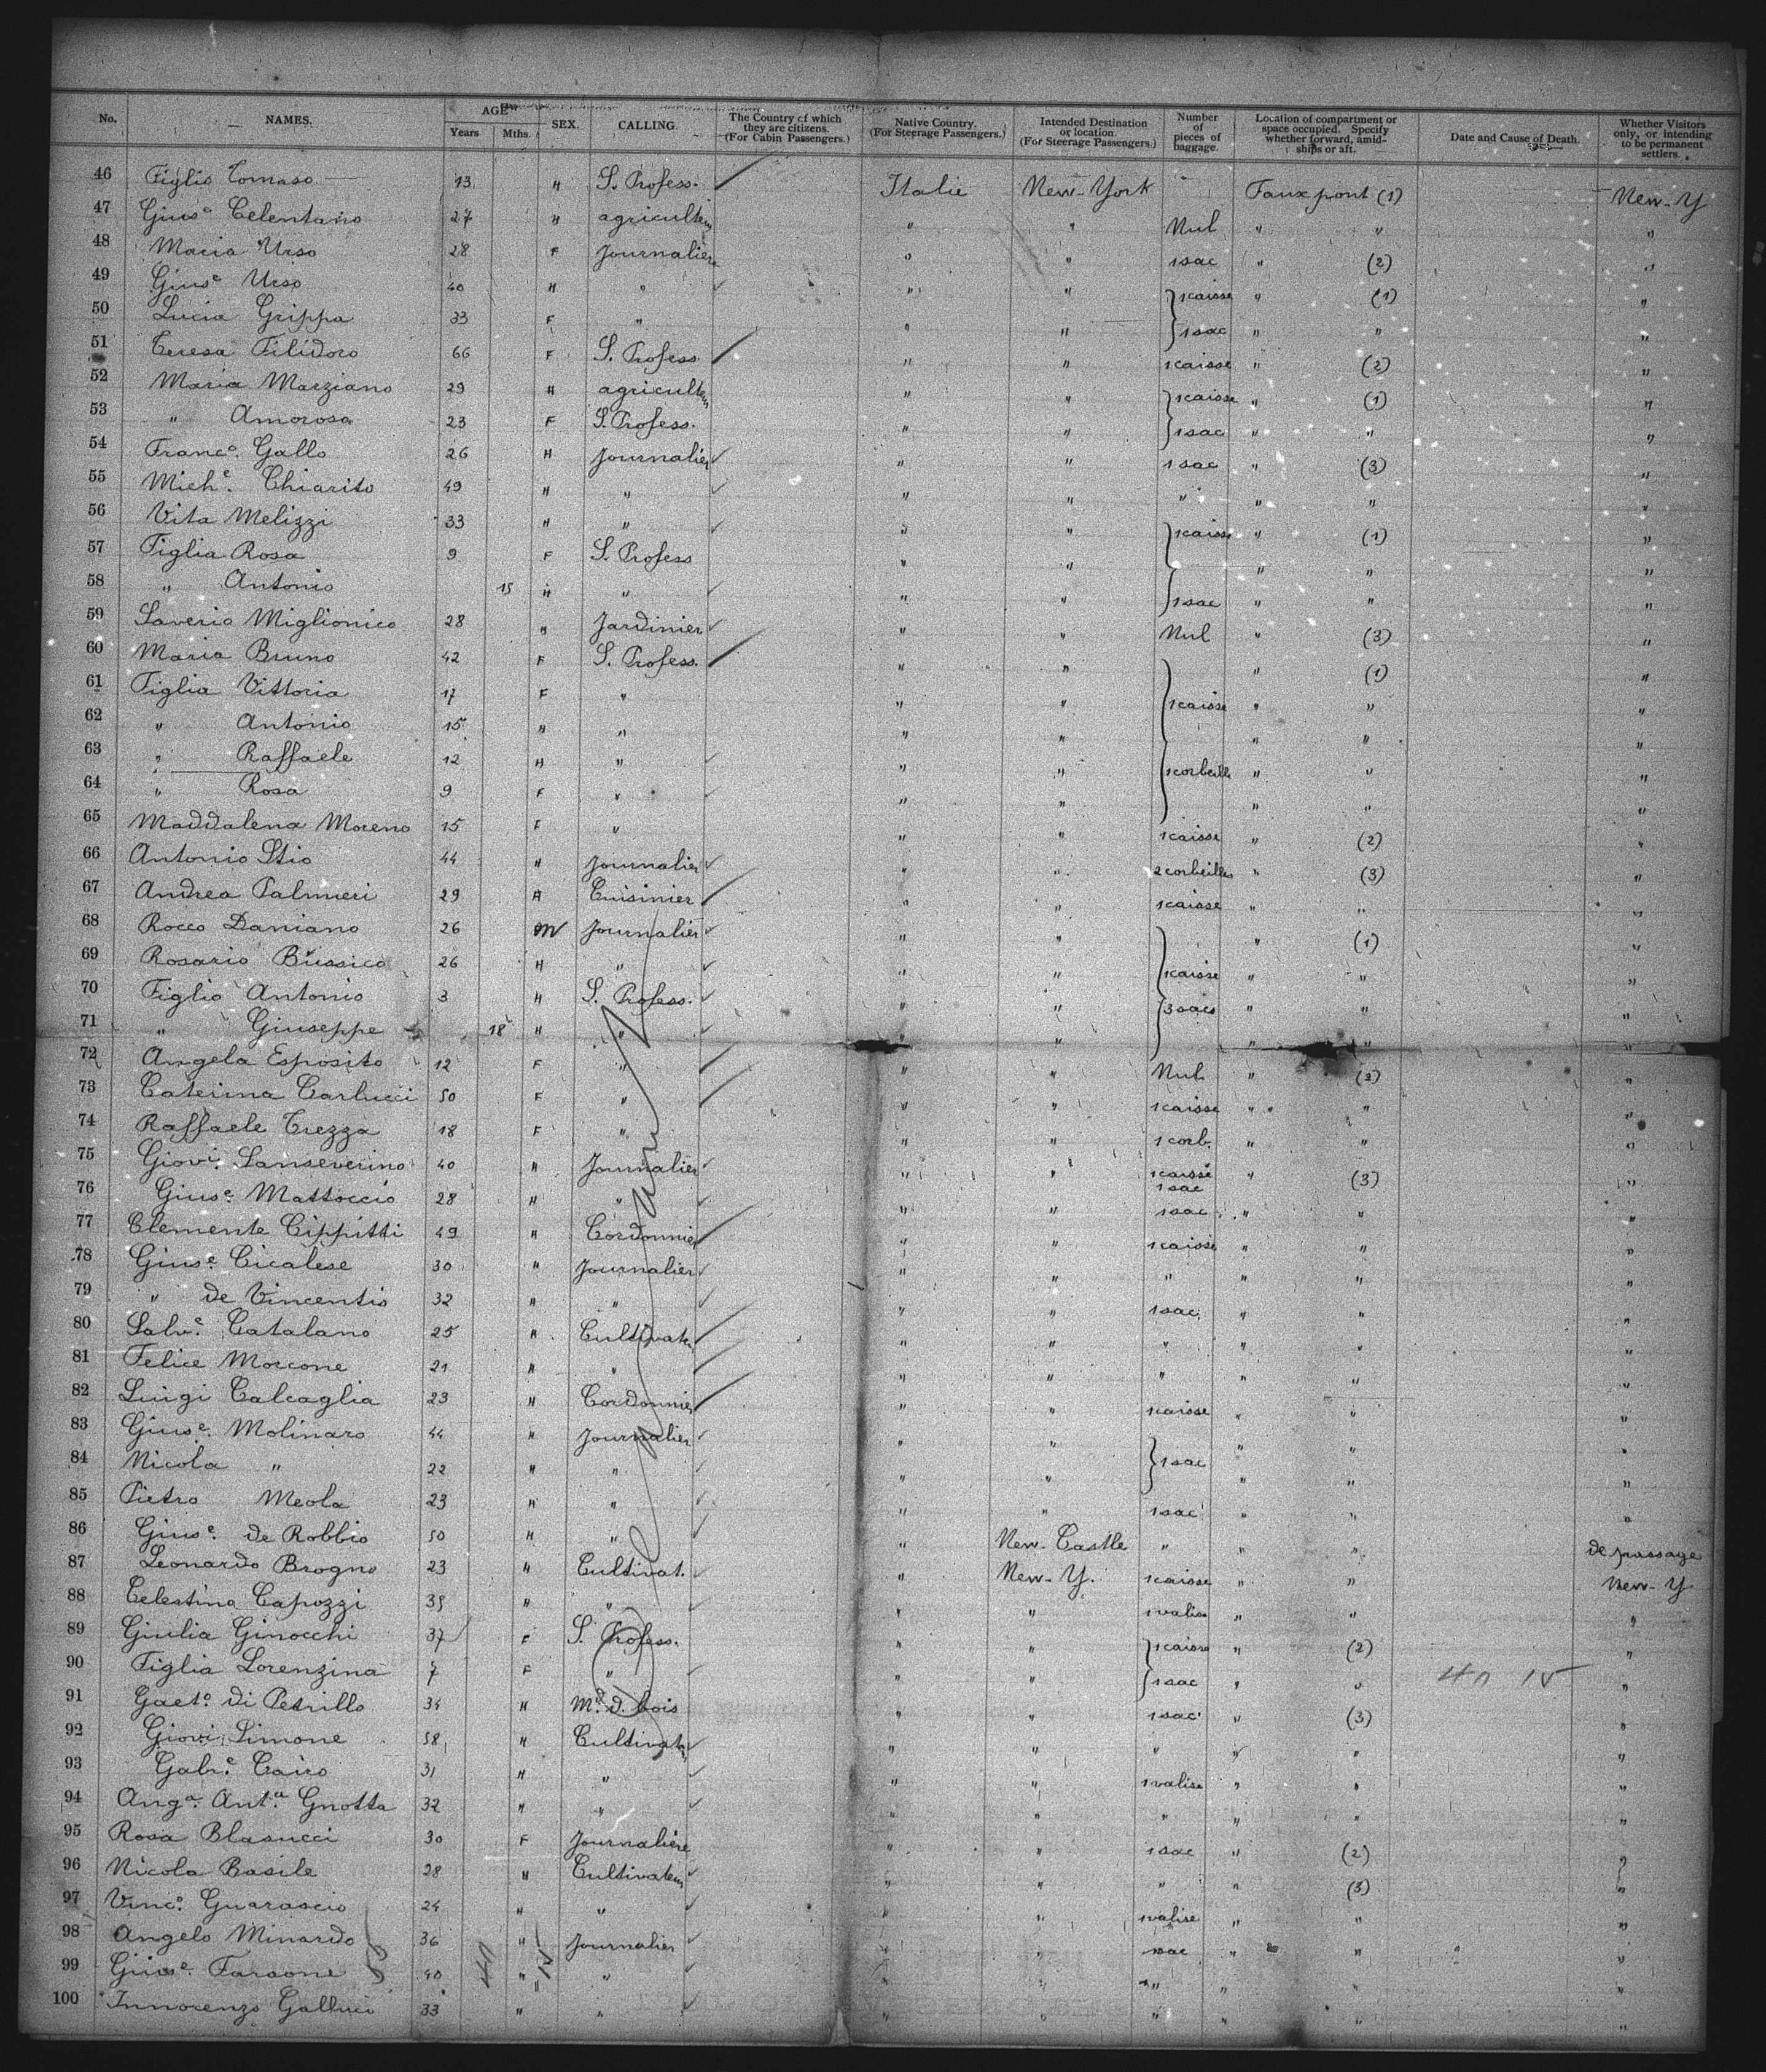 No. NAMES. AGE Years Mths. SEX. CALLING. The Country of which they are citizens. (For Cabin Passengers.) Native Country. (For Steerage Passengers.) Intended Destination or location. (For Steerage Passengers.) Number of pieces of baggage. Location of compartment or space occupied. Specify whether forward, amid-ships or aft. Date and Cause of Death. Whether Visitors only, or intending to be permanent settlers.
46 Figlio Tomaso 13 H S. Profess. Italie New-York Faux pont (1) New-Y
47 Giuse Celentano 27 H agriculteur " " Nul " " "
48 Maria Urso 28 F Journalière " " 1 sac " (2) "
49 Giuse Urso 40 H " " " 1 caisse " (1) "
50 Lucia Grippa 33 F " " " 1 sac " " "
51 Teresa Filidoro 66 F S. Profess. " " 1 caisse " (2) "
52 Maria Marziano 29 H agriculteur " " 1 caisse " (1) "
53 " Amorosa 23 F S. Profess. " " 1 sac " " "
54 Franco. Gallo 26 H Journalier " " 1 sac " (3) "
55 Miche. Chiarito 49 H " " " " " " "
56 Vita Melizzi 33 H " " " 1 caisse " (1) "
57 Figlia Rosa 9 F S. Profess " " " " "
58 " Antonio 15 H " " " 1 sac " " "
59 Saverio Miglionico 28 H Jardinier " " Nul " (3) "
60 Maria Bruno 42 F S. Profess. " " " (1) "
61 Figlia Vittoria 17 F " " " 1 caisse " " "
62 " Antonio 15 H " " " " " "
63 " Raffaele 12 H " " " 1 corbeille " " "
64 " Rosa 9 F " " " " " "
65 Maddalena Moreno 15 F " " " 1 caisse " (2) "
66 Antonio Stio 44 H Journalier " " 2 corbeilles " (3) "
67 Andrea Palmieri 29 H Cuisinier " " 1 caisse " " "
68 Rocco Daniano 26 M Journalier " " " (1) "
69 Rosario Bussico 26 H " " " 1 caisse " " "
70 Figlio Antonio 3 H S. Profess. " " 3 sacs " " "
71 " Giuseppe 18 H " " " " " "
72 Angela Esposito 12 F " " " Nul " (2) "
73 Caterina Carlucci 50 F " " " 1 caisse " " "
74 Raffaele Trezza 18 F " " " 1 corb. " " "
75 Giovi. Sanseverino 40 H Journalier " " 1 caisse 1 sac " (3) "
76 Giuse. Mattoccio 28 H " " " 1 sac " " "
77 Clemente Cippitti 49 H Cordonnier " " 1 caisse " " "
78 Giuse. Cicalese 30 H Journalier " " " " " "
79 " de Vincentis 32 H " " " 1 sac " " "
80 Salve. Catalano 25 H Cultivateur " " " " " "
81 Felice Morcone 21 H " " " " " " "
82 Luigi Calcaglia 23 H Cordonnier " " 1 caisse " " "
83 Giuse. Molinaro 44 H Journalier " " " " "
84 Nicola " 22 H " " " 1 sac " " "
85 Pietro Meola 23 H " " " 1 sac " " "
86 Giuse. de Robbio 50 H " " New-Castle " " " de passage
87 Leonardo Brogno 23 H Cultivat. " New-Y. 1 caisse " " New-Y
88 Celestino Capozzi 35 H " " " 1 valise " " "
89 Giulia Ginocchi 37 F S. Profess. " " 1 caisse " (2) "
90 Figlia Lorenzina 7 F " " " 1 sac " " "
91 Gaeto. di Petrillo 34 H Md. d. bois " " 1 sac " (3) "
92 Giovi. Simone 58 H Cultivateur " " " " " "
93 Gabe. Cairo 31 H " " " 1 valise " " "
94 Anga. Anta. Gnotta 32 H " " " " " " "
95 Rosa Blasucci 30 F Journalière " " 1 sac " (2) "
96 Nicola Basile 28 H Cultivateur " " " " (3) "
97 Vinco. Guarascio 24 H " " " 1 valise " " "
98 Angelo Minardo 36 H Journalier " " 1 sac " " "
99 Giuse. Faraone 40 " " " " " " " "
100 Innocenzo Gallucci 33 " " " " " " " "